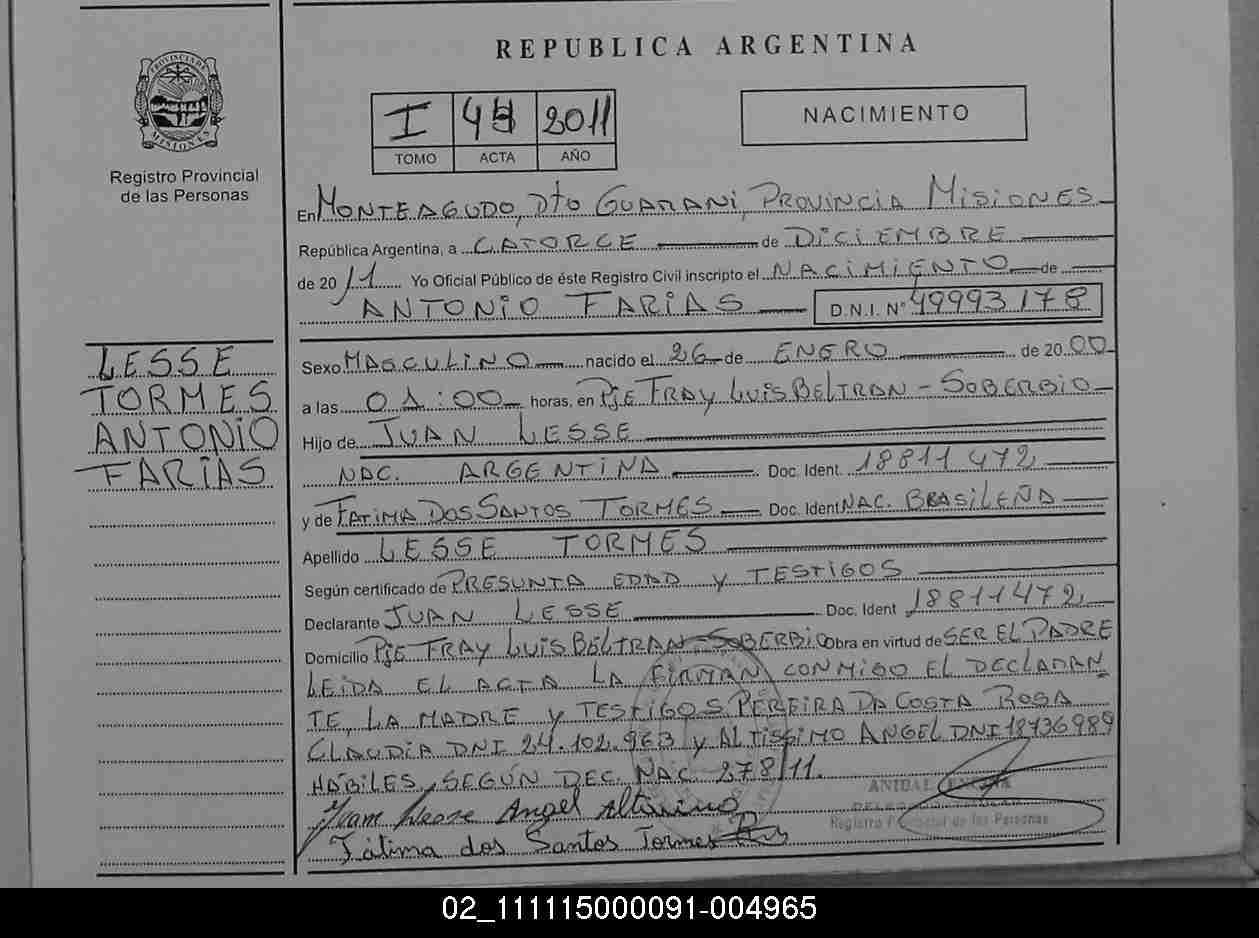 REPUBLICA ARGENTINA
PROVINCIA DE MISIONES
Registro Provincial
de las Personas
I 2011
TOMO ACTA AÑO
NACIMIENTO
En MONTEAGUDO, Dto GUARANI, PROVINCIA MISIONES
República Argentina, a CATORCE de DICIEMBRE
de 2011 Yo Oficial Público de éste Registro Civil inscripto el NACIMIENTO de
ANTONIO FARIAS D.N.I. Nº 49993178
LESSE
TORMES
ANTONIO
FARIAS
Sexo MASCULINO nacido el 26 de ENERO de 2000
a las 01:00 horas, en PJE FRAY LUIS BELTRAN - SOBERBIO
Hijo de JUAN LESSE
NAC. ARGENTINA Doc. Ident. 18811472
y de FATIMA DOS SANTOS TORMES Doc. Ident NAC. BRASILEÑA
Apellido LESSE TORMES
Según certificado de PRESUNTA EDAD Y TESTIGOS
Declarante JUAN LESSE Doc. Ident 18811472
Domicilio PJE FRAY LUIS BELTRAN - SOBERBIO Obra en virtud de SER EL PADRE
LEIDA EL ACTA LA FIRMAN CONMIGO EL DECLARAN
TE, LA MADRE Y TESTIGOS PEREIRA DA COSTA ROSA
CLAUDIA DNI 24.102.963 Y ALTISSIMO ANGEL DNI 18736989
HÁBILES, SEGÚN DEC. NAC. 278/11.
Juan Lesse Angel Altissimo
Fátima dos Santos Tormes
ANIBAL
Registro Provincial de las Personas
02_111115000091-004965